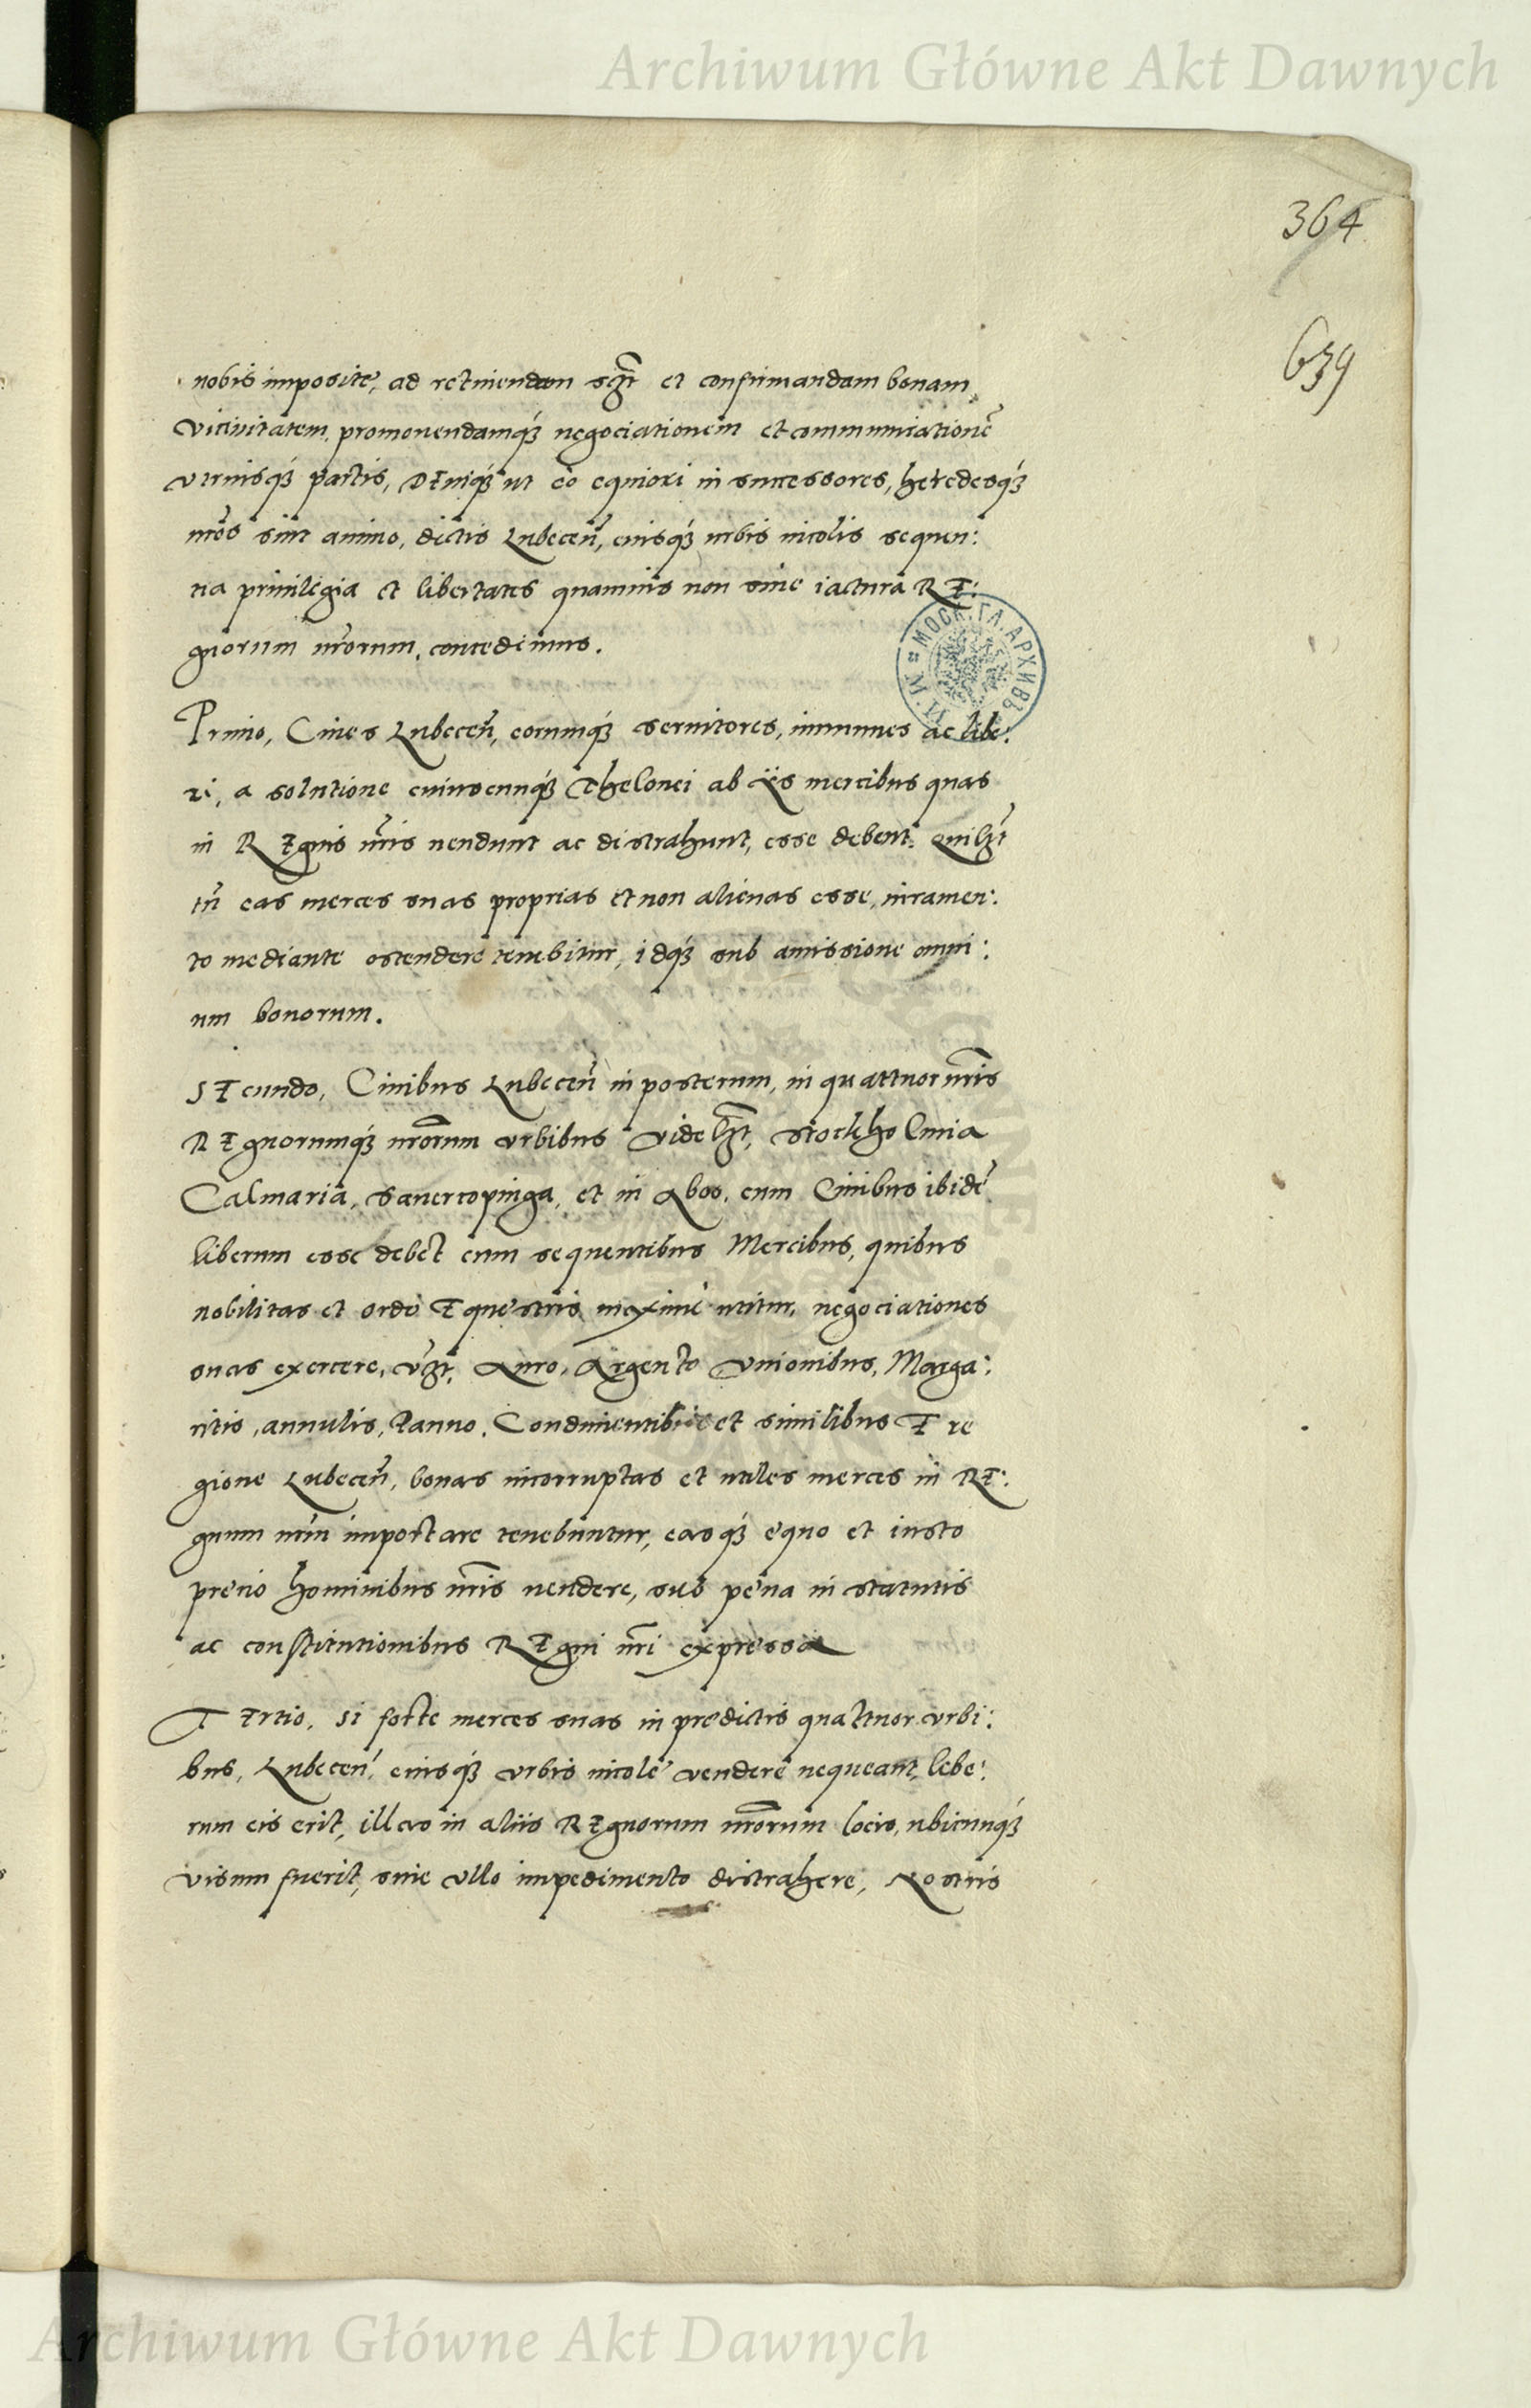 Archiwum Główne Akt Dawnych
364
639
nobis imposite, ad retinendam et confirmandam bonam
vicinitatem, promouendamq́ꝫ negociationem et communicationē
vtriusq́ꝫ partis, DEniq́ꝫ ut eo equiori in successores, heredesq́ꝫ
nr̄os sint animo, dictis Lubecen̄, eiusq́ꝫ urbis incolis sequen:
tia priuilegia et libertates quamuis non sine iactura RE:
gnorum nr̄orum, concedimus.
МОСК. ГЛ. АРХИВЪ М.И.Д.
Primo, Ciues Lubecen̄, eorumq́ꝫ seruitores, immunes ac libe:
ri, a solutione cuiuscunq́ꝫ Thelonei ab ijs mercibus quas
in REgnis nr̄is uendunt ac distrahunt, esse debent. Quilꝫt
tn̄ eas merces suas proprias et non alienas esse, iuramen:
to mediante ostendere tenebitur, idq́ꝫ sub amissione omni:
um bonorum.
SEcundo, Ciuibus Lubecen̄ in posterum, in quattuor nr̄is
REgnorumq́ꝫ nr̄orum vrbibus videlꝫt, Stockholmia
Calmaria, Sauercopinga, et in Aboo, cum Ciuibus ibidē
liberum esse debet cum sequentibus Mercibus, quibus
nobilitas et ordo Equestris maxime utitur, negociationes
suas exercere, vꝫt, Auro, Argento Vnionibus, Marga:
ritis, annulis, Panno, Condimentibus et similibus E re
gione Lubecen̄, bonas incorruptas et utiles merces in RE:
gnum nr̄m importare tenebuntur, easq́ꝫ equo et iusto
precio hominibus nr̄is uendere, sub pena in statutis
ac constitutionibus REgni nr̄i expressa
TErtio, Si forte merces suas in predictis quattuor vrbi:
bus, Lubecen̄, eiusq́ꝫ vrbis incole vendere nequeant, libe:
rum eis erit, illas in aliis REgnorum nr̄orum locis, ubicunq́ꝫ
visum fuerit, sine vllo impedimento distrahere, Nostris
Archiwum Główne Akt Dawnych